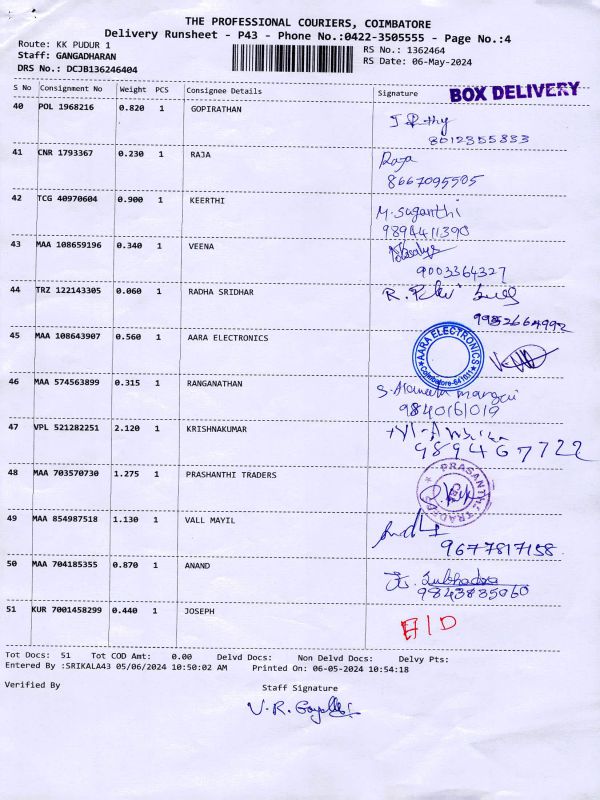 THE PROFESSIONAL COURIERS, COIMBATORE
Delivery Runsheet - P43 - Phone No.:0422-3505555 - Page No.:4
Route: KK PUDUR 1
RS No.: 1362464
Staff: GANGADHARAN
RS Date: 06-May-2024
DRS No.: DCJB136246404
S No Consignment No Weight PCS Consignee Details Signature
BOX DELIVERY
40 POL 1968216 0.820 1 GOPIRATHAN
8012355833
41 CNR 1793367 0.230 1 RAJA Raja
8667095505
42 TCG 40970604 0.900 1 KEERTHI M. Suganthi
9894411390
43 MAA 108659196 0.340 1 VEENA
9003364327
44 TRZ 122143305 0.060 1 RADHA SRIDHAR R.
9952664992
45 MAA 108643907 0.560 1 AARA ELECTRONICS
AARA ELECTRONICS
Coimbatore-641011
46 MAA 574563899 0.315 1 RANGANATHAN S.
9840161019
47 VPL 521282251 2.120 1 KRISHNAKUMAR
989467722
48 MAA 703570730 1.275 1 PRASHANTHI TRADERS
PRASANTHI TRADERS
49 MAA 854987518 1.130 1 VALL MAYIL
9677817158
50 MAA 704185355 0.870 1 ANAND Subhadra
9843835060
51 KUR 7001458299 0.440 1 JOSEPH
Tot Docs: 51 Tot COD Amt: 0.00 Delvd Docs: Non Delvd Docs: Delvy Pts:
Entered By :SRIKALA43 05/06/2024 10:50:02 AM Printed On: 06-05-2024 10:54:18
Verified By
Staff Signature
V.R.